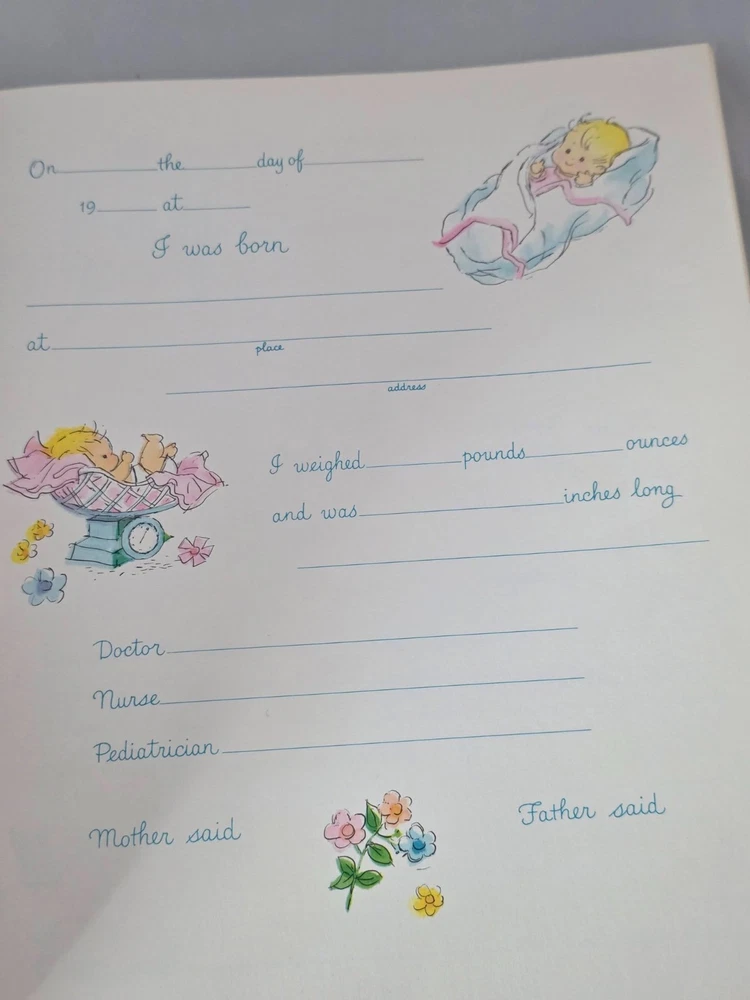 On the day of
19 at
I was born
at
place
address
I weighed pounds ounces
and was inches long
Doctor
Nurse
Pediatrician
Mother said Father said